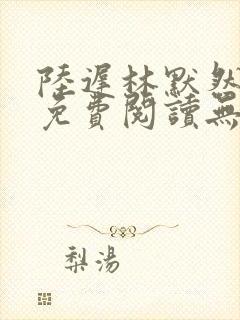 陸遲林默然
免費閱讀無
梨湯